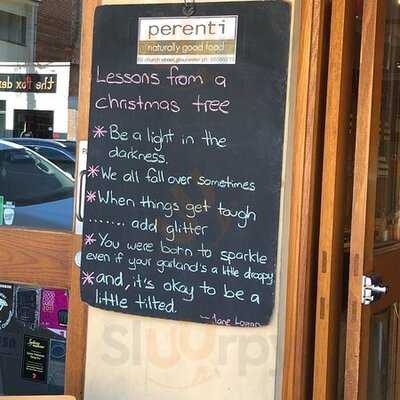 perenti
naturally good food
Lessons from a
christmas tree
* Be a light in the
darkness.
* We all fall over sometimes
* When things get tough
....... add glitter
* You were born to sparkle
even if your garland's a little droopy
* and, it's okay to be a
little tilted.
the fox den
Sluurpy